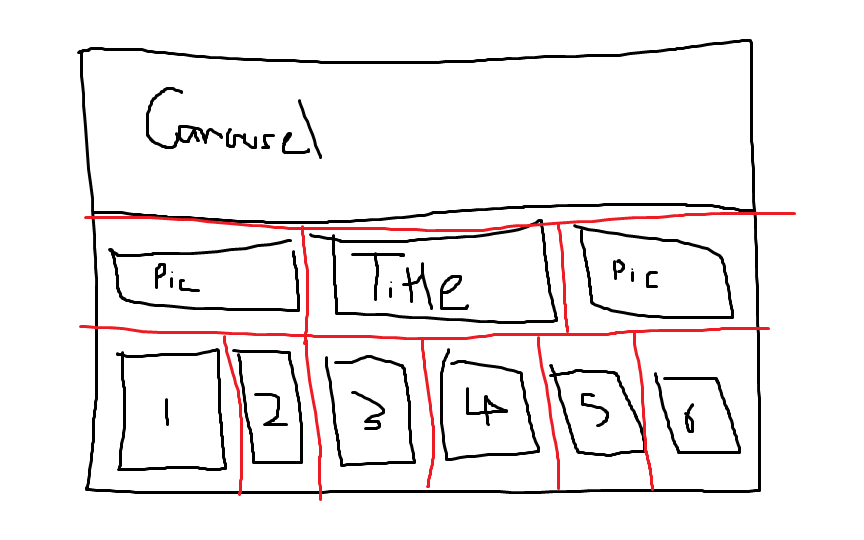 Carousel
Pic Title Pic
1 2 3 4 5 6